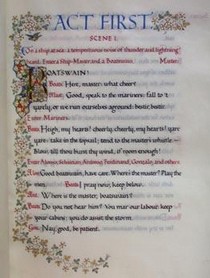 ACT FIRST.
SCENE I.
On a ship at sea: a tempestuous noise of thunder and lightning
heard. Enter a Ship-Master and a Boatswain. Master.
BOATSWAIN!
Boats: Here, master: what cheer?
Mast: Good, speak to the mariners: fall to't
yarely, or we run ourselves aground: bestir, bestir.
Enter Mariners.
Boats: Heigh, my hearts! cheerly, cheerly, my hearts! yare
yare: take in the topsail; tend to the master's whistle.
Blow, till thou burst thy wind, if room enough!
Enter Alonso, Sebastian, Antonio, Ferdinand, Gonzalo, and others.
Good boatswain, have care. Where's the master? Play the
men.
Boats: I pray now, keep below.
Where is the master, boatswain?
Boats: Do you not hear him? You mar our labour: keep
your cabins: you do assist the storm.
Gon: Nay, good, be patient.